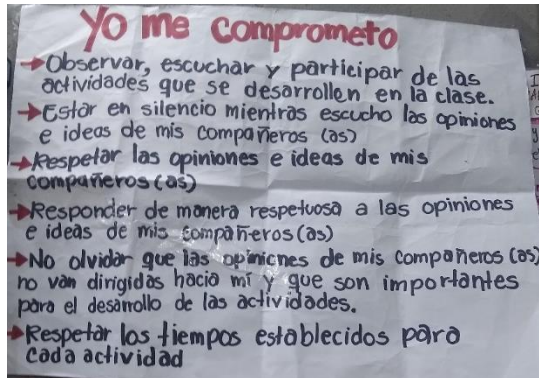 Yo me comprometo
Observar, escuchar y participar de las
actividades que se desarrollen en la clase.
Estar en silencio mientras escucho las opiniones
e ideas de mis compañeros (as)
Respetar las opiniones e ideas de mis
compañeros (as)
Responder de manera respetuosa a las opiniones
e ideas de mis compañeros (as)
No olvidar que las opiniones de mis compañeros (as)
no van dirigidas hacia mí y que son importantes
para el desarrollo de las actividades.
Respetar los tiempos establecidos para
cada actividad